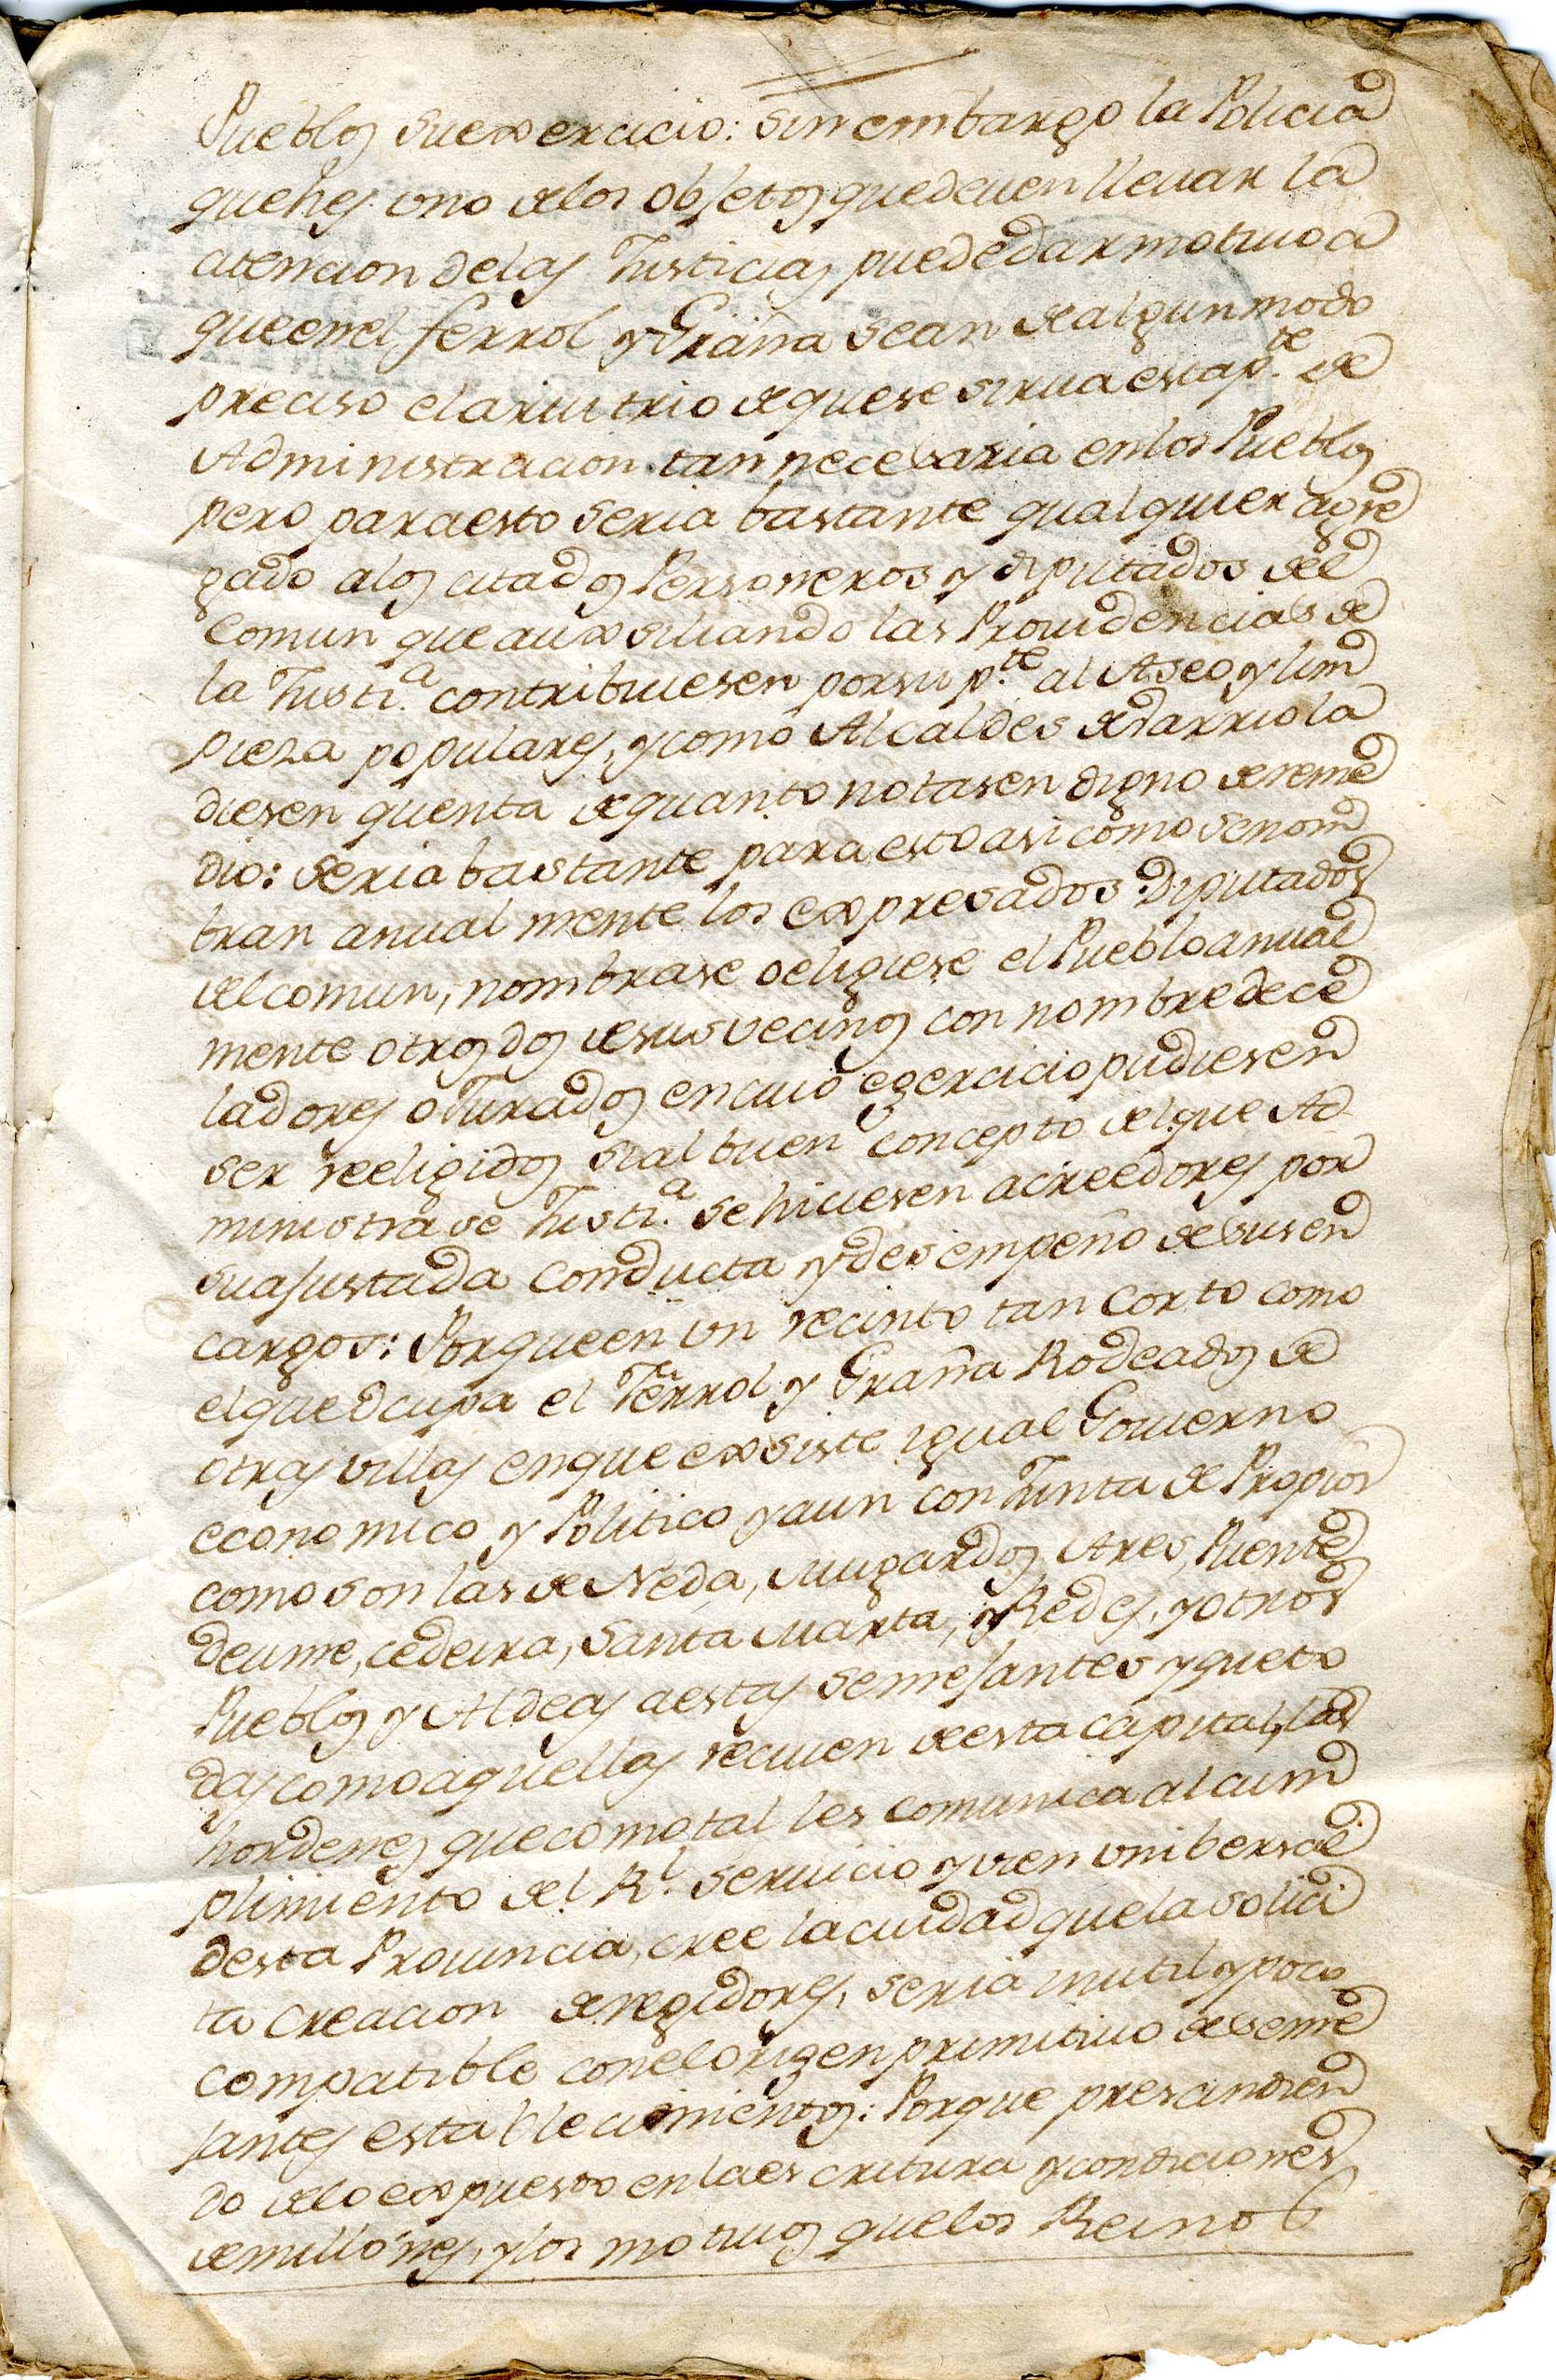 Pueblos su exercicio: sin embargo la Policia
que hes vno de los objetos que deuen lleuar la
atencion de las Justicias puede dar motiuo a
que en el ferrol y Graña sean de algun modo
preciso el aruitrio de que se sirua esta p.te de
Administracion tan necesaria en los Pueblos
pero para esto seria bastante qualquier agre
gado a los citados Personeros y diputados del
Comun que auxsiliando las Prouidencias de
la Justi.a contribuiesen por su p.te al Aseo, y lim
pieza populares, y como Alcaldes de varrio la
diesen quenta de quanto notasen digno de reme
dio: seria bastante para esto asi como se nom
bran anualmente los expresados Diputados
del comun, nombrase o eligiese el Pueblo anual
mente otros dos de sus vecinos con nombre de ce
ladores o Jurados en cuio egercicio pudiesen
ser reeligidos si al buen concepto del que Ad
ministrase Justi.a se hiciesen acreedores por
su ajustada Conducta y desempeño de sus en
cargos: Porque en vn recinto tan Corto como
el que Ocupa el Ferrol y Graña Rodeados de
otras villas en que exsiste igual Gouierno
economico y Politico y aun con Junta de Propios
como son las de Neda, Mugardos, Ares, Puente
deume, cedeira, Santa Marta, y Redes, y otros
Pueblos y Aldeas a estas semejantes y que to
das como aquellas reciuen de esta Capital, las
hordenes que como tal les comunica al cum
plimiento del R.l seruicio y vien vnibersal
desta Prouincia, cree la ciudad que la solici
ta creacion de regidores, seria inutil y poco
compatible con el Origen primitiuo de seme
jantes establecimientos: Porque prescindien
do de lo expuesto en la escritura y condiciones
de millónes, y los motiuos que los Reinos